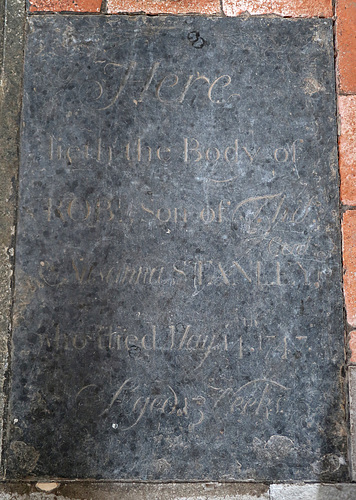 Here
lieth the Body of
ROBt. Son of
Susanna STANLEY
who died May 14th 1747
Aged 3 Weeks